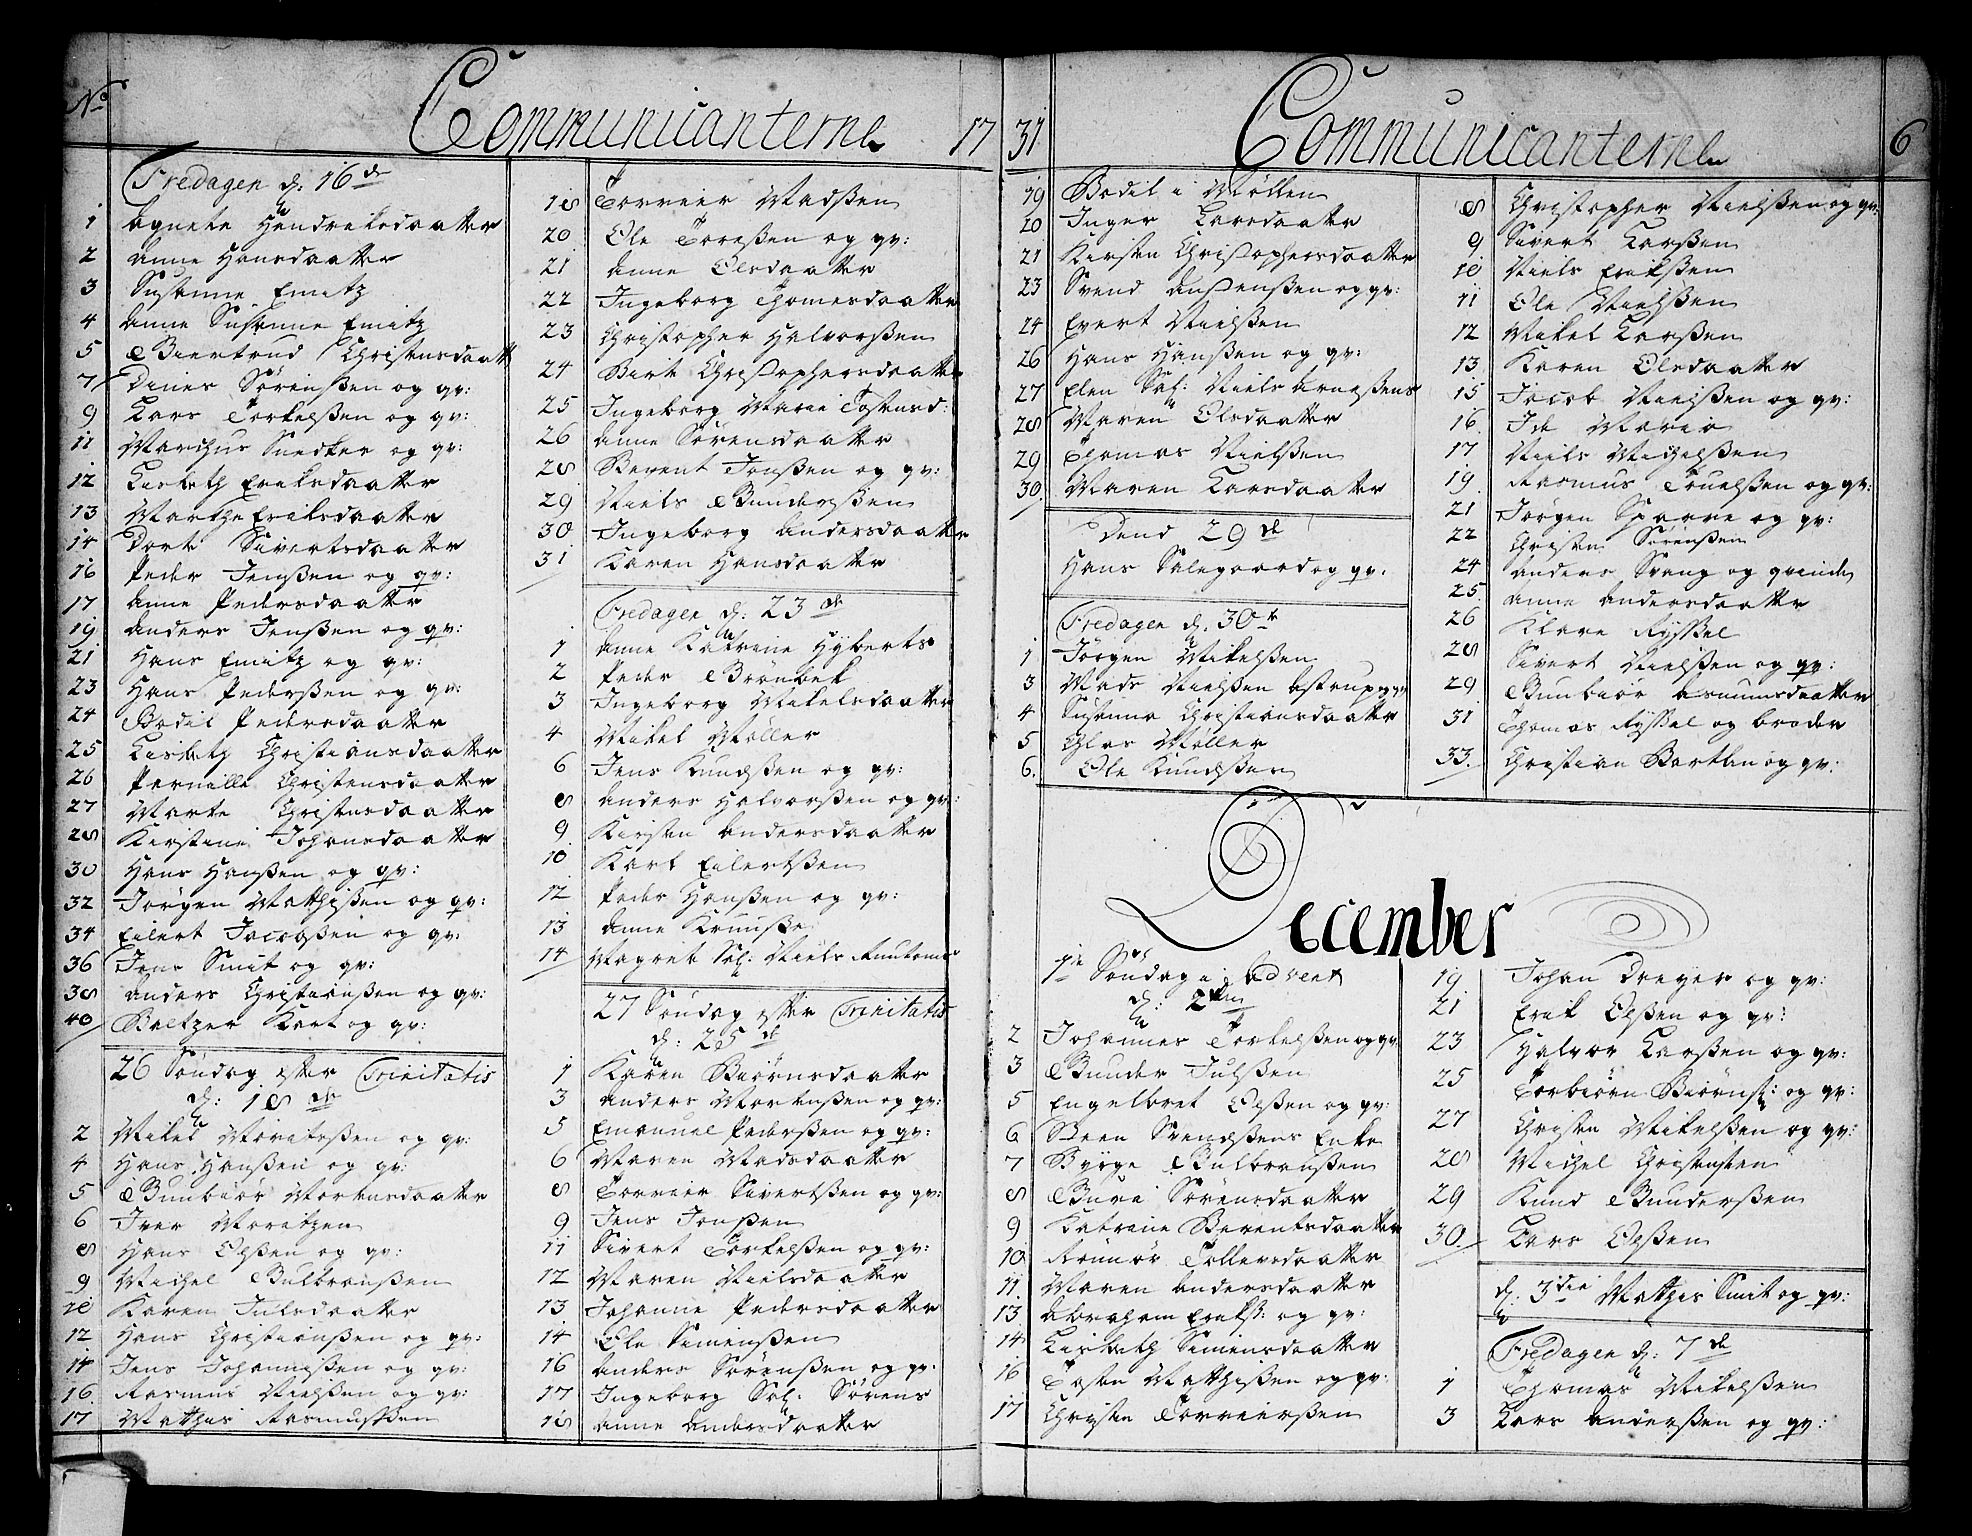 No
Communicanterne 17
Fredagen d: 16de
1 Agnete Hendriksdaatter
2 Anne Hansdaatter
3 Susanne Smitz
4 Anne Susanne Smitz
5 Giertrud Christensdaatt
7 Dines Sörensßen og qv:
9 Lars Torkelsßen og qv:
11 Marchus Snedker og qv:
12 Lisbeth Eriksdaatter
13 Marthe Eriksdaatter
14 Dorte Sivertsdaatter
16 Peder Jensßen og qv:
17 Anne Pedersdaatter
19 Anders Jensßen og qv:
21 Hans Smitz og qv:
23 Hans Pedersßen og qv:
24 Bodil Pedersdaatter
25 Lisbeth Christiansdaatter
26 Pernille Christensdaatter
27 Marte Christensdaatter
28 Kirstine Johansdaatter
30 Hans Hansßen og qv:
32 Jörgen Matthisßen og qv:
34 Eilert Jacobsßen og qv:
36 Jens Smit og qv:
38 Anders Christiansßen og qv:
40 Baltzer Kart og qv:
26 Söndag efter Trinitatis
d: 18de
2 Mikel Moritsßen og qv:
4 Hans Hansßen og qv:
5 Gunbiör Mortensdaatter
6 Iver Moritzen
8 Hans Olsßen og qv:
9 Michel Gulbransßen
10 Karen Julsdaatter
12 Hans Christiansßen og qv:
14 Jens Johannisßen og qv:
16 Rasmus Nielsßen og qv:
17 Mathis Rasmusßen
18 Torreir Madsßen
20 Ole Toresßen og qv:
21 Anne Olsdaatter
22 Ingeborg Thomesdaatter
23 Christopher Halvorsßen
24 Birte Christophersdaatter
25 Ingeborg Marie Tostensd:
26 Anne Sörensdaatter
28 Berent Jonsßen og qv:
29 Niels Gundersßen
30 Ingeborg Andersdaatter
31 Karen Hansdaatter
Fredagen d: 23de
1 Anne Katrine Hyberts
2 Peder Grönbek
3 Ingeborg Mikelsdaatter
4 Mikel Möller
6 Jens Knudsßen og qv:
8 Anders Halvorsßen og qv:
9 Kirsten Andersdaatter
10 Kart Eilertsßen
12 Peder Hansßen og qv:
13 Anne
14 Magret Sal: Niels
27 Söndag efter Trinitatis
d: 25de
1 Karen Biörnsdaatter
3 Anders Mortensßen og qv:
5 Emanuel Pedersßen og qv:
6 Maren Madsdaatter
8 Torreir Sivertsßen og qv:
9 Jens Jonsßen
11 Sivert Torkelsßen og qv:
12 Maren Nielsdaatter
13 Johanne Pedersdaatter
14 Ole Simensßen
16 Anders Sörensßen og qv:
17 Ingeborg Sal: Sörens
18 Anne Andersdaatter
31 Communicanterne 6
19 Bodil i Möllen
20 Inger Larsdaatter
21 Kirsten Christophersdaatter
23 Svend Austensßen og qv:
24 Evert Nielsßen
26 Hans Hansßen og qv:
27 Elen Sal: Niels Arnesßens
28 Maren Olsdaatter
29 Thomas Nielsßen
30 Maren Larsdaatter
Dend 29de
Hans Salegaard og qv:
Fredagen d: 30te
1 Jörgen Mikelsßen
3 Mads Nielsßen Astrup og qv
4 Susanna Christiansdaatter
5 Clas Möller
6. Ole Knudsßen
8 Christopher Nielsßen og qv:
9 Sivert Larsßen
10 Niels Eriksßen
11 Ole Nielsßen
12 Mikel Larsßen
13 Karen Olsdaatter
15 Jacob Nielsßen og qv:
16. Ide Maria
17 Niels Michelsßen
19. Rasmus Truelsßen og qv:
21 Jörgen Sparre og qv:
22 Christen Sörensßen
24 Anders Svang og qvinde
25. Anne Andersdaatter
26 Klare Ryssel
28 Sivert Nielsßen og qv:
29 Gunbiör Asmunsdaatter
31 Thomas Ryssel og broder
33. Christian Bartlin og qv:
December
1ste Söndag i Advent
d: 2den
2 Johannes Torkelsßen og qv
3 Gunder Julsßen
5 Engelbret Olsßen og qv:
6 Steen Svendsßens Enke
7 Byrge Gulbransßen
8 Guri Sörensdaatter
9 Katrine Berentsdaatter
10 Ronnör Tollevsdaatter
11. Maren Andersdaatter
13 Abraham Eriks: og qv:
14 Lisbeth Simensdaatter
16 Tosten Matthisßen og qv:
17 Christen Torreirsßen
19. Johan Dreyer og qv:
21 Erik Olsßen og qv:
23 Halvor Larsßen og qv:
25 Torbiörn Biörns: og qv:
27 Christen Mikelsßen og qv:
28 Michel Christensten
29 Knud Gundersßen
30. Lars Olsßen
d: 3die Mathis Smit og qv:
Fredagen d: 7de
1 Thomas Mikelsßen
3 Lars Andersßen og qv: